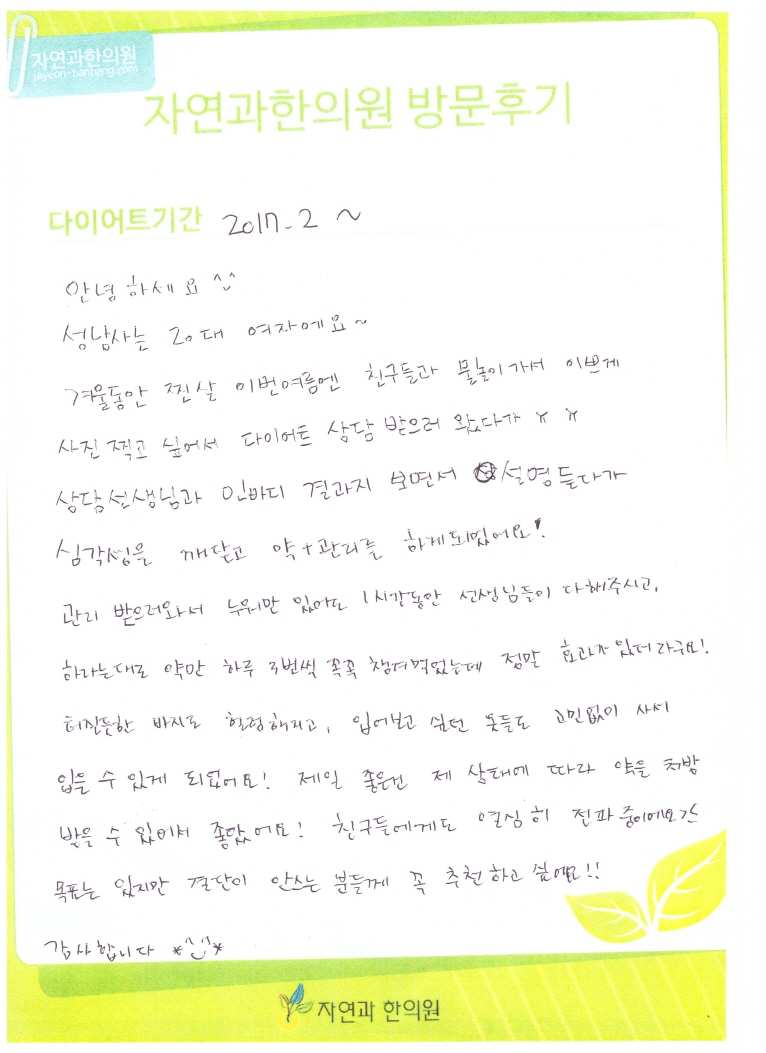 자연과한의원
jayeon-hanbang.com
자연과한의원 방문후기
다이어트기간 2017. 2 ~
안녕하세요 ^^
성남사는 20대 여자에요~
겨울동안 찐살 이번여름엔 친구들과 물놀이가서 이쁘게
사진 찍고 싶어서 다이어트 상담 받으러 왔다가 ㅠㅠ
상담선생님과 인바디 결과지 보면서 설명듣다가
심각성을 깨닫고 약+관리를 하게되었어요!
관리 받으러와서 누워만 있어도 1시간동안 선생님들이 다해주시고,
하라는대로 약만 하루 3번씩 꼭꼭 챙겨먹었는데 정말 효과가 있더라구요!
터질듯한 바지도 헐렁해지고, 입어보고 싶던 옷들도 고민없이 사서
입을 수 있게 되었어요! 제일 좋은건 제 상태에 따라 약을 처방
받을 수 있어서 좋았어요! 친구들에게도 열심히 전파중이에요
목표는 있지만 결단이 안스는 분들께 꼭 추천하고 싶어요!!
감사합니다 *^^*
자연과 한의원